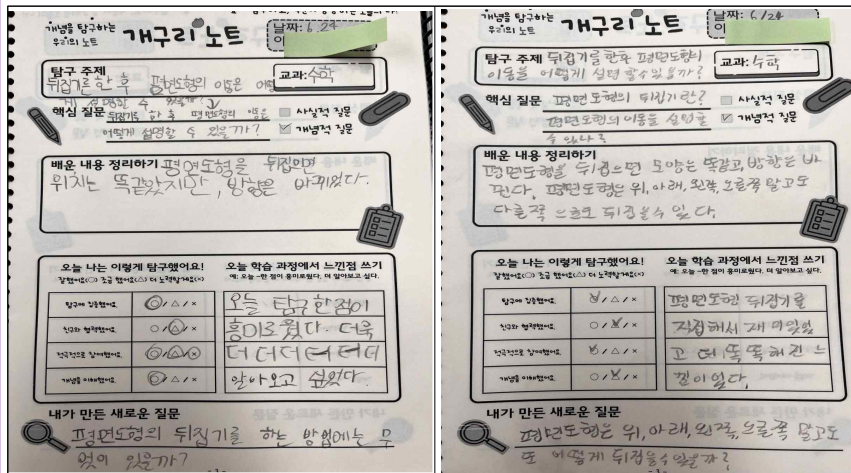 개념을 탐구하는
우리의 노트
개구리 노트
날짜: 6.24
탐구 주제
뒤집기를 한 후 평면도형의 이동은 어떻
게 설명할 수 있을까?
교과: 수학
핵심 질문
뒤집기를 한 후 평면도형의 이동은
어떻게 설명할 수 있을까?
사실적 질문
개념적 질문
배운 내용 정리하기
평면도형을 뒤집으면
위치는 똑같았지만, 방향은 바뀌었다.
오늘 나는 이렇게 탐구했어요!
잘했어요(○) 조금 했어요(△) 더 노력할게요(×)
탐구에 집중했어요. ○/△/×
친구와 협력했어요. ○/△/×
적극적으로 참여했어요. ○/△/×
개념을 이해했어요. ○/△/×
오늘 학습 과정에서 느낀점 쓰기
예: 오늘 ~한 점이 흥미로웠다. 더 알아보고 싶다.
오늘 탐구한점이
흥미로웠다. 더욱
더더더더더더
알아오고 싶었다.
내가 만든 새로운 질문
평면도형의 뒤집기를 하는 방법에는 무
엇이 있을까?
개념을 탐구하는
우리의 노트
개구리 노트
날짜: 6/24
탐구 주제 뒤집기를 한후 평면도형의
이동을 어떻게 설명 할수있을까?
교과: 수학
핵심 질문 평면도형의 뒤집기란?
평면도형의 이동을 설명할
수 있나?
사실적 질문
개념적 질문
배운 내용 정리하기
평면도형을 뒤집으면 모양은 똑같고, 방향은 바
뀐다. 평면도형은 위, 아래, 왼쪽, 오른쪽 말고도
다른쪽 으로도 뒤집을수 있다.
오늘 나는 이렇게 탐구했어요!
잘했어요(○) 조금 했어요(△) 더 노력할게요(×)
탐구에 집중했어요. ○/△/×
친구와 협력했어요. ○/△/×
적극적으로 참여했어요. ○/△/×
개념을 이해했어요. ○/△/×
오늘 학습 과정에서 느낀점 쓰기
예: 오늘 ~한 점이 흥미로웠다. 더 알아보고 싶다.
평면도형 뒤집기를
직접해서 재미있었
고 더 똑똑해진 느
낌이었다.
내가 만든 새로운 질문
평면도형은 위, 아래, 왼쪽, 오른쪽 말고도
또 어떻게 뒤집을수있을까?